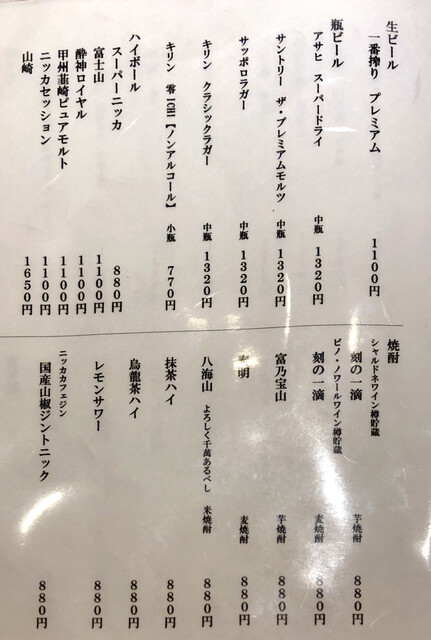 生ビール
一番搾り プレミアム 1100円
瓶ビール
アサヒ スーパードライ 中瓶 1320円
サントリー ザ・プレミアムモルツ 中瓶 1320円
サッポロラガー 中瓶 1320円
キリン クラシックラガー 中瓶 1320円
キリン 零ICHI【ノンアルコール】 小瓶 770円
ハイボール
スーパーニッカ 880円
富士山 1100円
酔神ロイヤル 1100円
甲州韮崎ピュアモルト 1100円
ニッカセッション 1100円
山崎 1650円
焼酎
シャルドネワイン樽貯蔵
刻の一滴 芋焼酎 880円
ピノ・ノワールワイン樽貯蔵
刻の一滴 麦焼酎 880円
富乃宝山 芋焼酎 880円
明 麦焼酎 880円
八海山 よろしく千萬あるべし 米焼酎 880円
抹茶ハイ 880円
烏龍茶ハイ 880円
レモンサワー 880円
ニッカカフェジン
国産山椒ジントニック 880円